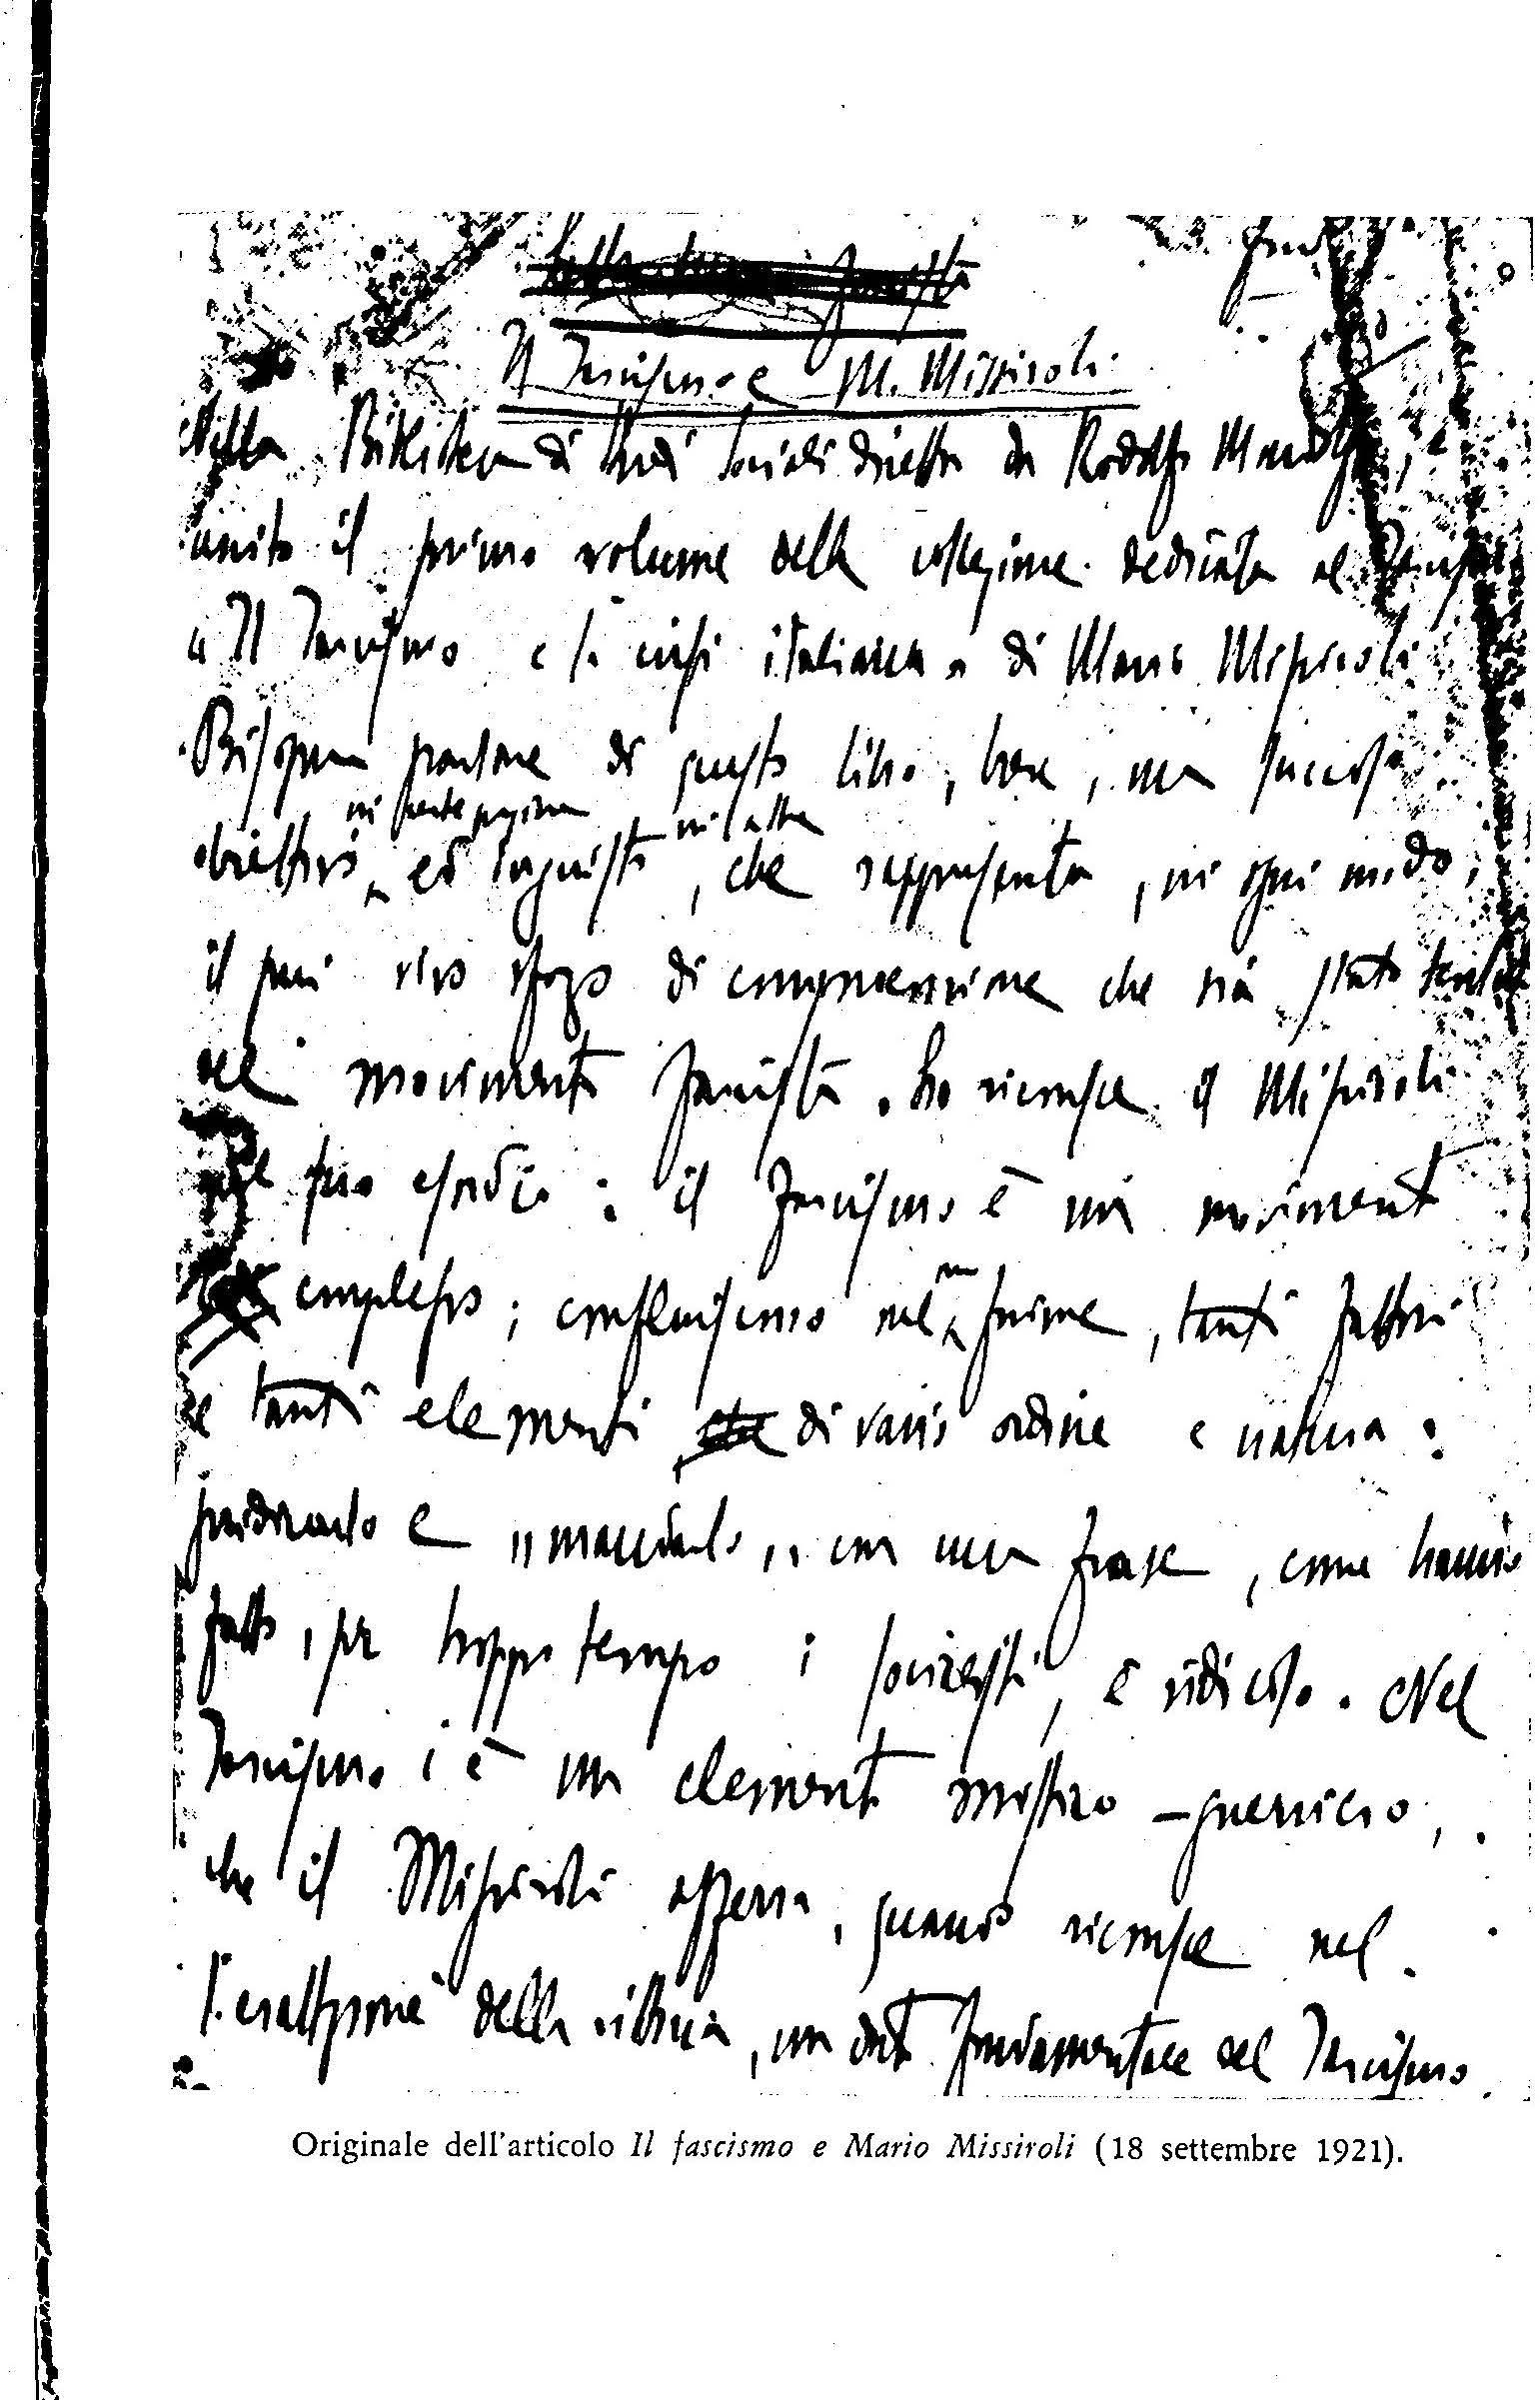 Il Fascismo e M. Missiroli
Nella Biblioteca di Studi Sociali diretta da Rodolfo Mondolfo, è
uscito il primo volume della collezione dedicata al Fascismo
"Il Fascismo e la crisi italiana" di Mario Missiroli
Bisogna parlare di questo libro, breve, ma succoso
in parte in altra
obiettivo ed ingiusto, che rappresenta, in ogni modo,
il più vivo sforzo di comprensione che sia stato tentato
del movimento fascista. Lo riconosce il Missiroli
nel suo esordio: il Fascismo è un movimento
complesso; confluiscono nel suo fiume, tanti fattori
e tanti elementi che di vario ordine e natura:
e "  " con una frase, come hanno
fatto, per troppo tempo i socialisti, è ridicolo. Nel
Fascismo c'è un elemento mistico-guerriero,
che il Missiroli afferra, quando riconosce nel
l'esaltazione della vittoria, un dato fondamentale del Fascismo.
Originale dell'articolo Il fascismo e Mario Missiroli (18 settembre 1921).